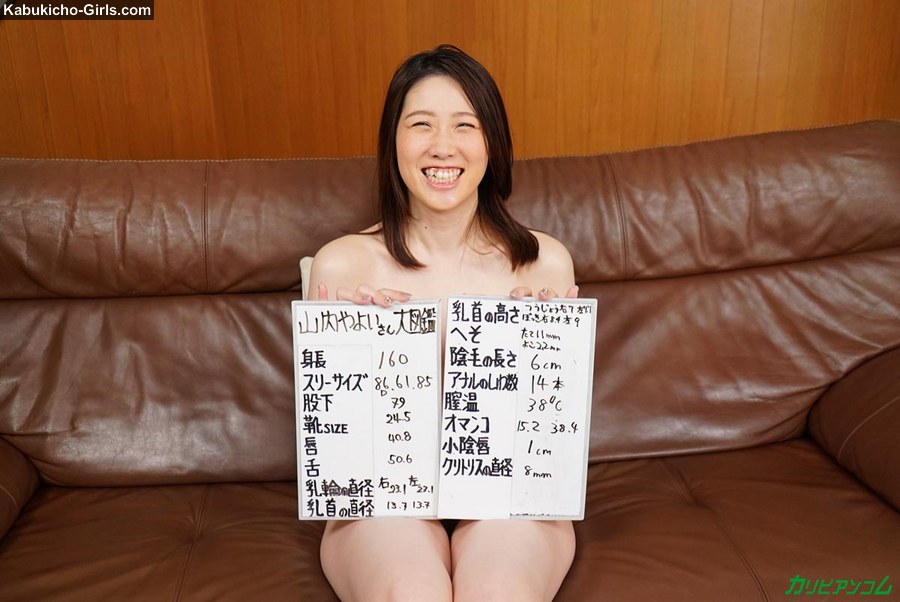 Kabukicho-Girls.com
山内やよいさん大図鑑
身長 160
スリーサイズ 86.61.85
D
股下 79
靴SIZE 24.5
唇 40.8
舌 50.6
乳輪の直径 右23.1 左22.1
乳首の直径 13.7 13.7
乳首の高さ つうじょう右7
ぼっき右 9
へそ たて11mm
よこ22mm
陰毛の長さ 6cm
アナルのしわ数 14本
膣温 38℃
オマンコ 15.2 38.4
小陰唇 1cm
クリトリスの直径 8mm
カリビアンコム